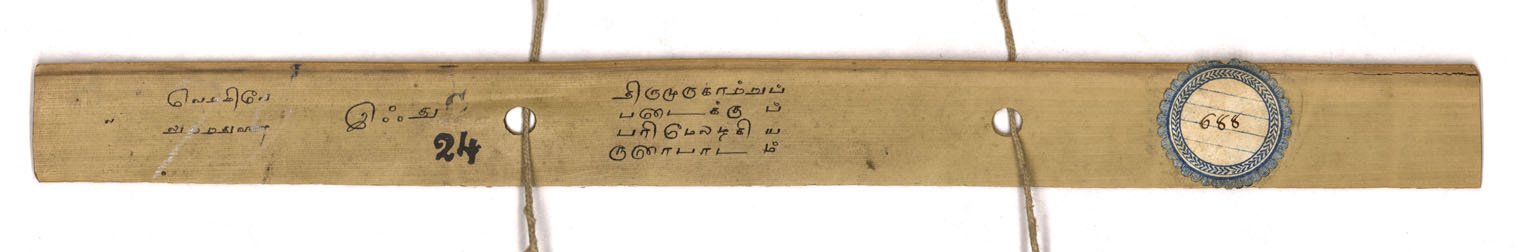 இஃது
24
திருமுருகாற்றுப்
படைக்கு ப்
பரிமேலழகி ய
ருரைபாட ம்
688